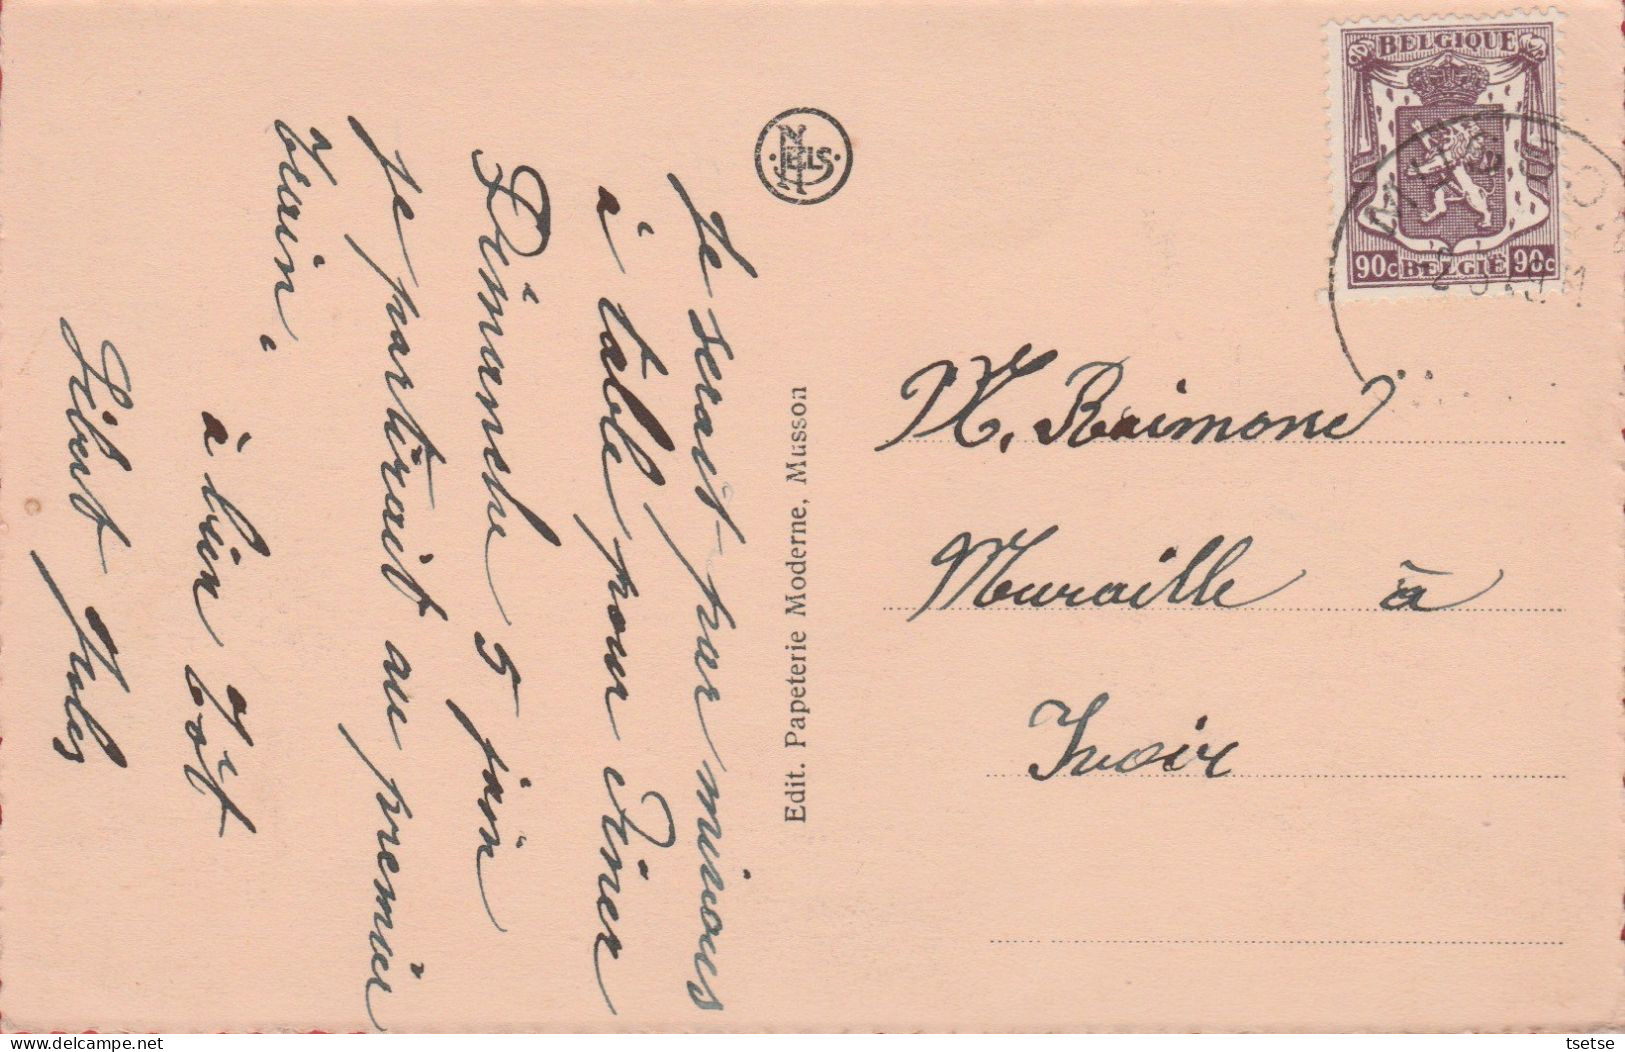 Je serait par minous
à table pour Diner
Dimanche 5 jiin
Je partirait au premier
train.
à bien tôt
Libert Jules
NELS
Edit. Papeterie Moderne, Musson
BELGIQUE
90c BELGIE 90c
M. Raimond
Muraille à
Ivoir
tsetse